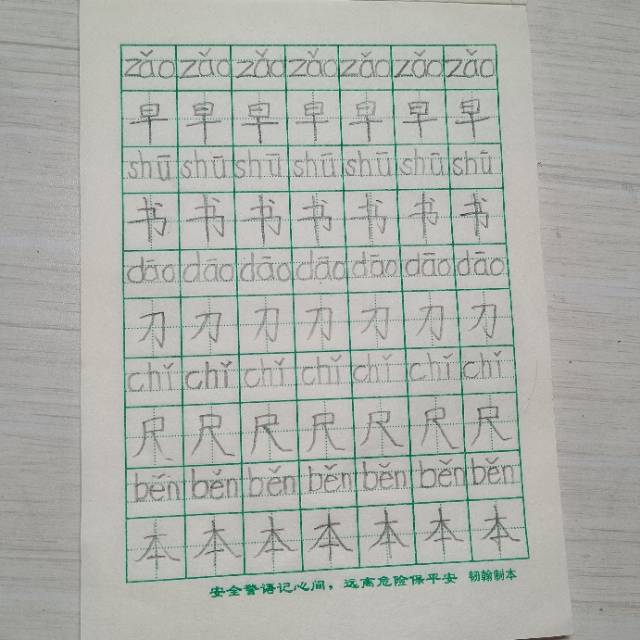 zǎo zǎo zǎo zǎo zǎo zǎo zǎo
早 早 早 早 早 早 早
shū shū shū shū shū shū shū
书 书 书 书 书 书 书
dāo dāo dāo dāo dāo dāo dāo
刀 刀 刀 刀 刀 刀 刀
chǐ chǐ chǐ chǐ chǐ chǐ chǐ
尺 尺 尺 尺 尺 尺 尺
běn běn běn běn běn běn běn
本 本 本 本 本 本 本
安全警语记心间，远离危险保平安 韧翰制本